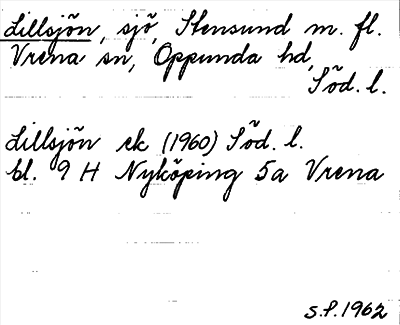 Lillsjön, sjö, Stensund m. fl.
Vrena sn, Oppunda hd,
Söd. l.
Lillsjön ek (1960) Söd. l.
bl. 9 H Nyköping 5a Vrena
S.P. 1962